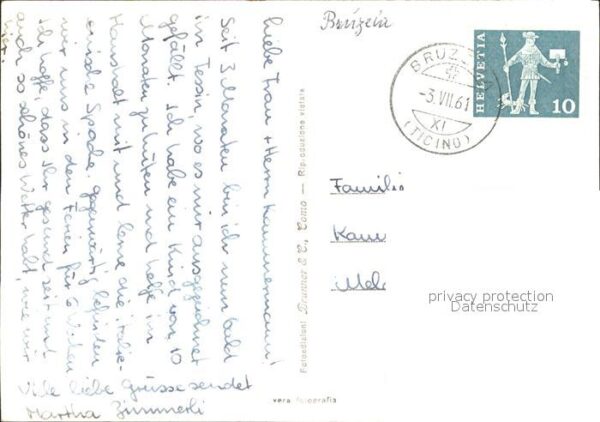 Bruzela
HELVETIA
10
BRUZ
-3.VII.61
XI
(TICINO)
Liebe Frau + Herr Kammermann!
Seit 3 Monaten bin ich nun bald
im Tessin, wo es mir ausgezeichnet
gefällt. Ich habe ein Kind von 10
Monaten zu hüten und helfe im
Haushalt mit und lerne die italie-
nische Sprache. Gegenwärtig befinden
wir uns in den Ferien für 6 Wochen
Ich hoffe, dass Ihr gesund seit und
auch so schönes Wetter habt, wie wir
hier.
Viele liebe Grüsse sendet
Martha Zimmerli
Fotoedizioni Brunner & C., Como — Riproduzione vietata
vera fotografia
Familie
Kam
privacy protection
Datenschutz